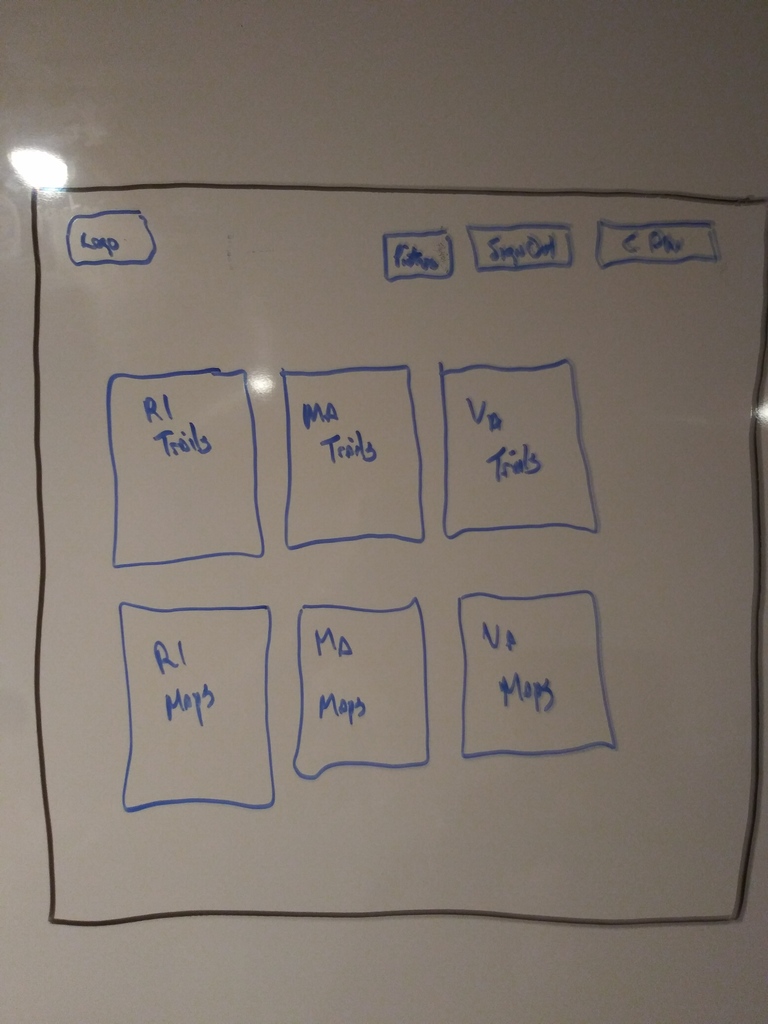 Logo
Sign Out
RI
Trails
MA
Trails
VA
Trails
RI
Maps
MA
Maps
VA
Maps